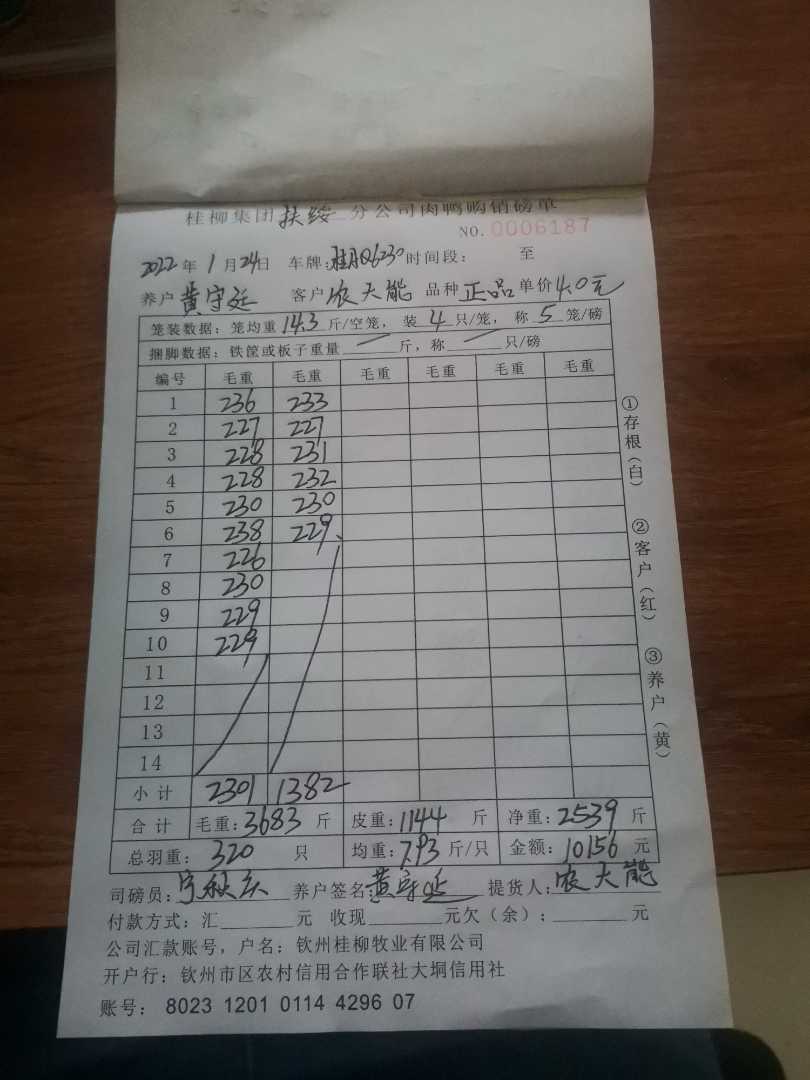 桂柳集团扶绥分公司肉鸭购销磅单
NO. 0006187
2022年1月24日 车牌:桂A06230 时间段: 至
养户 黄守廷 客户 农大能 品种 正品 单价 4.0元
笼装数据: 笼均重 14.3 斤/空笼, 装 4 只/笼, 称 5 笼/磅
捆脚数据: 铁筐或板子重量 斤, 称 只/磅
编号 毛重 毛重 毛重 毛重 毛重 毛重
1 236 233
2 227 227
3 228 231
4 228 232
5 230 230
6 238 229
7 226
8 230
9 229
10 229
11
12
13
14
小计 2301 1382
合计 毛重:3683 斤 皮重:1144 斤 净重:2539 斤
总羽重: 320 只 均重:7.93 斤/只 金额:10156 元
司磅员: 养户签名:黄守廷 提货人:农大能
付款方式:汇 元 收现 元欠(余): 元
公司汇款账号, 户名: 钦州桂柳牧业有限公司
开户行: 钦州市区农村信用合作联社大垌信用社
账号: 8023 1201 0114 4296 07
①存根(白)
②客户(红)
③养户(黄)